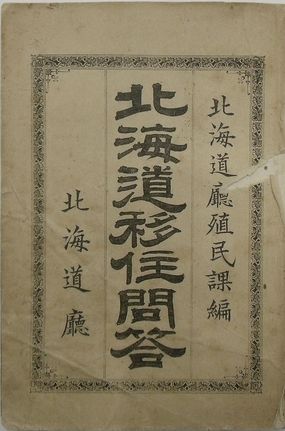 北海道廳殖民課編
北海道移住問答
北海道廳